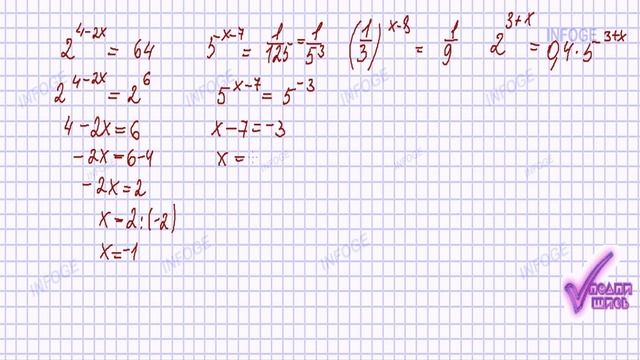 2^{4-2x} = 64
2^{4-2x} = 2^6
4-2x=6
-2x=6-4
-2x=2
x=2:(-2)
x=-1
5^{x-7} = 1/125 = 1/5^3
5^{x-7} = 5^{-3}
x-7=-3
x=
(1/3)^{x-8} = 1/9
2^{3+x} = 0,4·5^{3+x}
INFOGE
INFOGE
INFOGE
INFOGE
INFOGE
INFOGE
INFOGE
INFOGE
INFOGE
INFOGE
INFOGE
подпи
шись